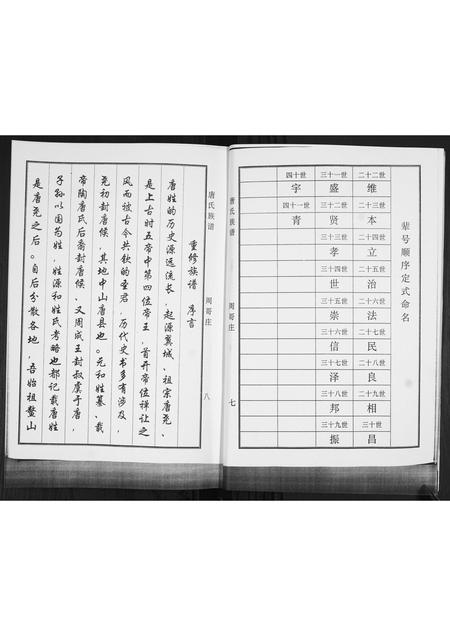 辈号顺序定式命名
二十二世 三十一世 四十世
维 盛 宇
二十三世 三十二世 四十一世
本 贤 青
二十四世 三十三世
立 孝
二十五世 三十四世
治 世
二十六世 三十五世
法 崇
二十七世 三十六世
民 信
二十八世 三十七世
良 泽
二十九世 三十八世
相 邦
三十世 三十九世
昌 振
唐氏族谱
周哥庄
七
唐氏族谱
周哥庄
八
重修族谱 序言
唐姓的历史源远流长，起源翼城、祖宗唐尧、
是上古时五帝中第四位帝王，首开帝位禅让之
风而被古今共钦的圣君，历代史书多有涉及，
尧初封唐候，其地中山唐县也。元和姓纂、载
帝陶唐氏后裔封唐候、又周成王封叔虞于唐，
子孙以国为姓，姓源和姓氏考略也都记载唐姓
是唐尧之后。自后分散各地，吾始祖鳌山